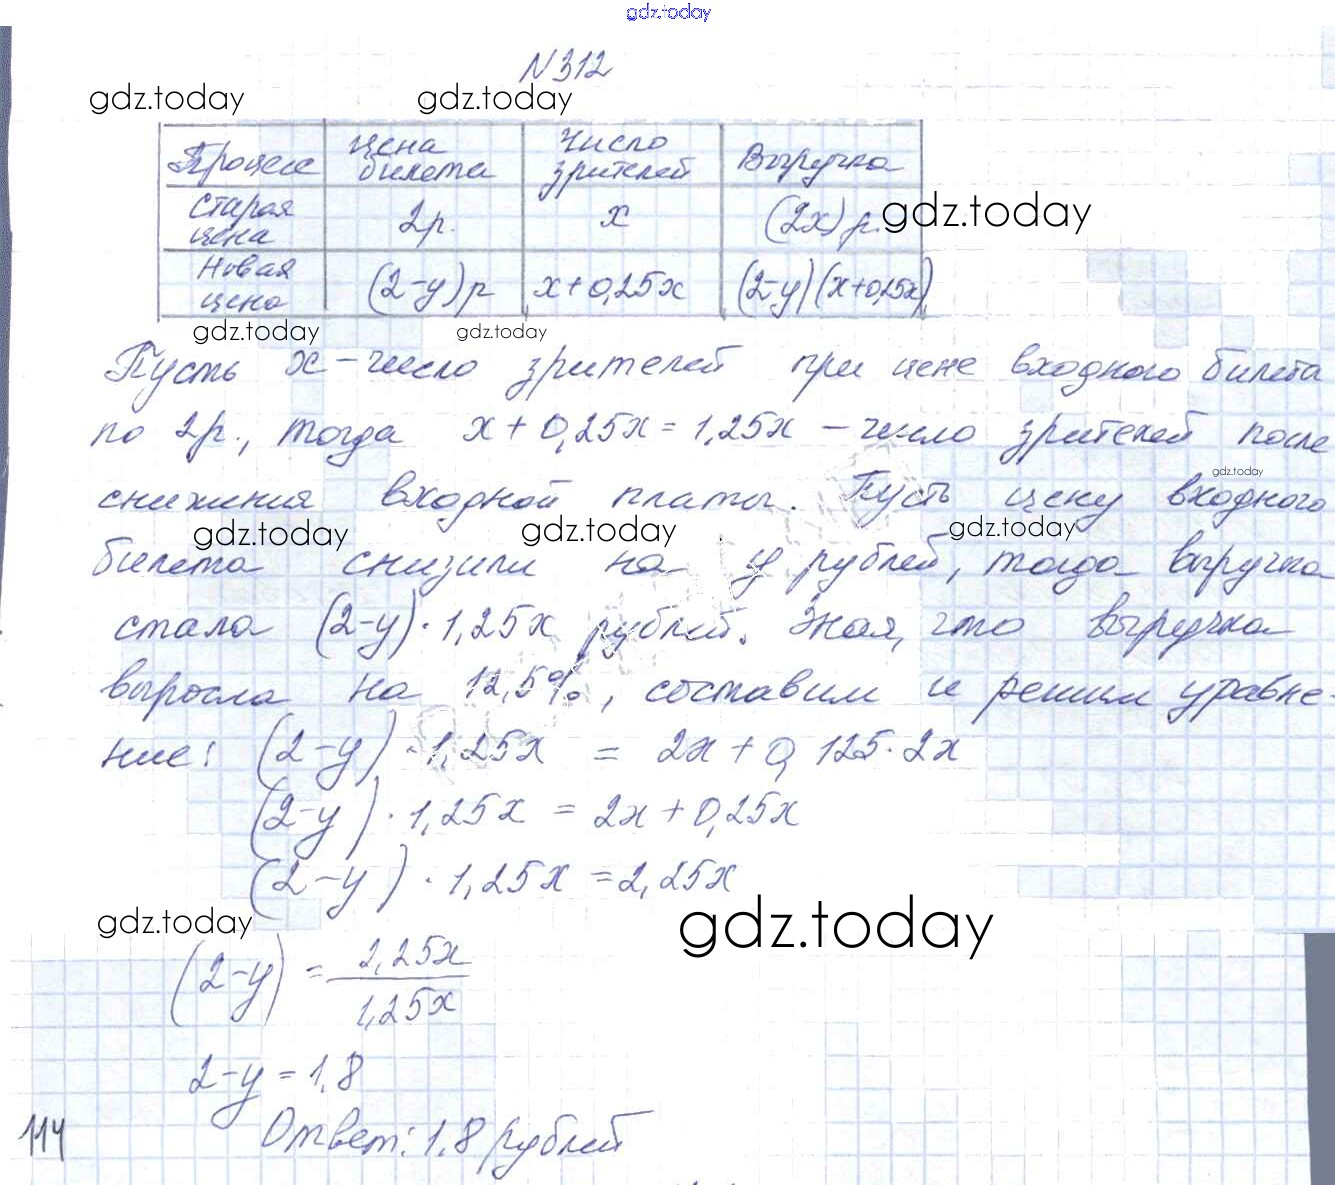 gdz.today
N 312
gdz.today gdz.today
Процесс цена билета Число зрителей Выручка
старая цена 2р. x (2x) р. gdz.today
новая цена (2-y) р x+0,25x (2-y)(x+0,25x)
gdz.today gdz.today
Пусть x – число зрителей при цене входного билета
по 2р., тогда x + 0,25x = 1,25x – число зрителей после
gdz.today
снижения входной платы. Пусть цену входного
gdz.today gdz.today gdz.today
билета снизили на y рублей, тогда выручка
стала (2-y)·1,25x рублей. Зная, что выручка
выросла на 12,5%, составим и решим уравне-
ние: (2-y)·1,25x = 2x + 0,125·2x
(2-y)·1,25x = 2x + 0,25x
(2-y)·1,25x = 2,25x
gdz.today gdz.today
(2-y) = 2,25x / 1,25x
2-y = 1,8
114 Ответ: 1,8 рублей